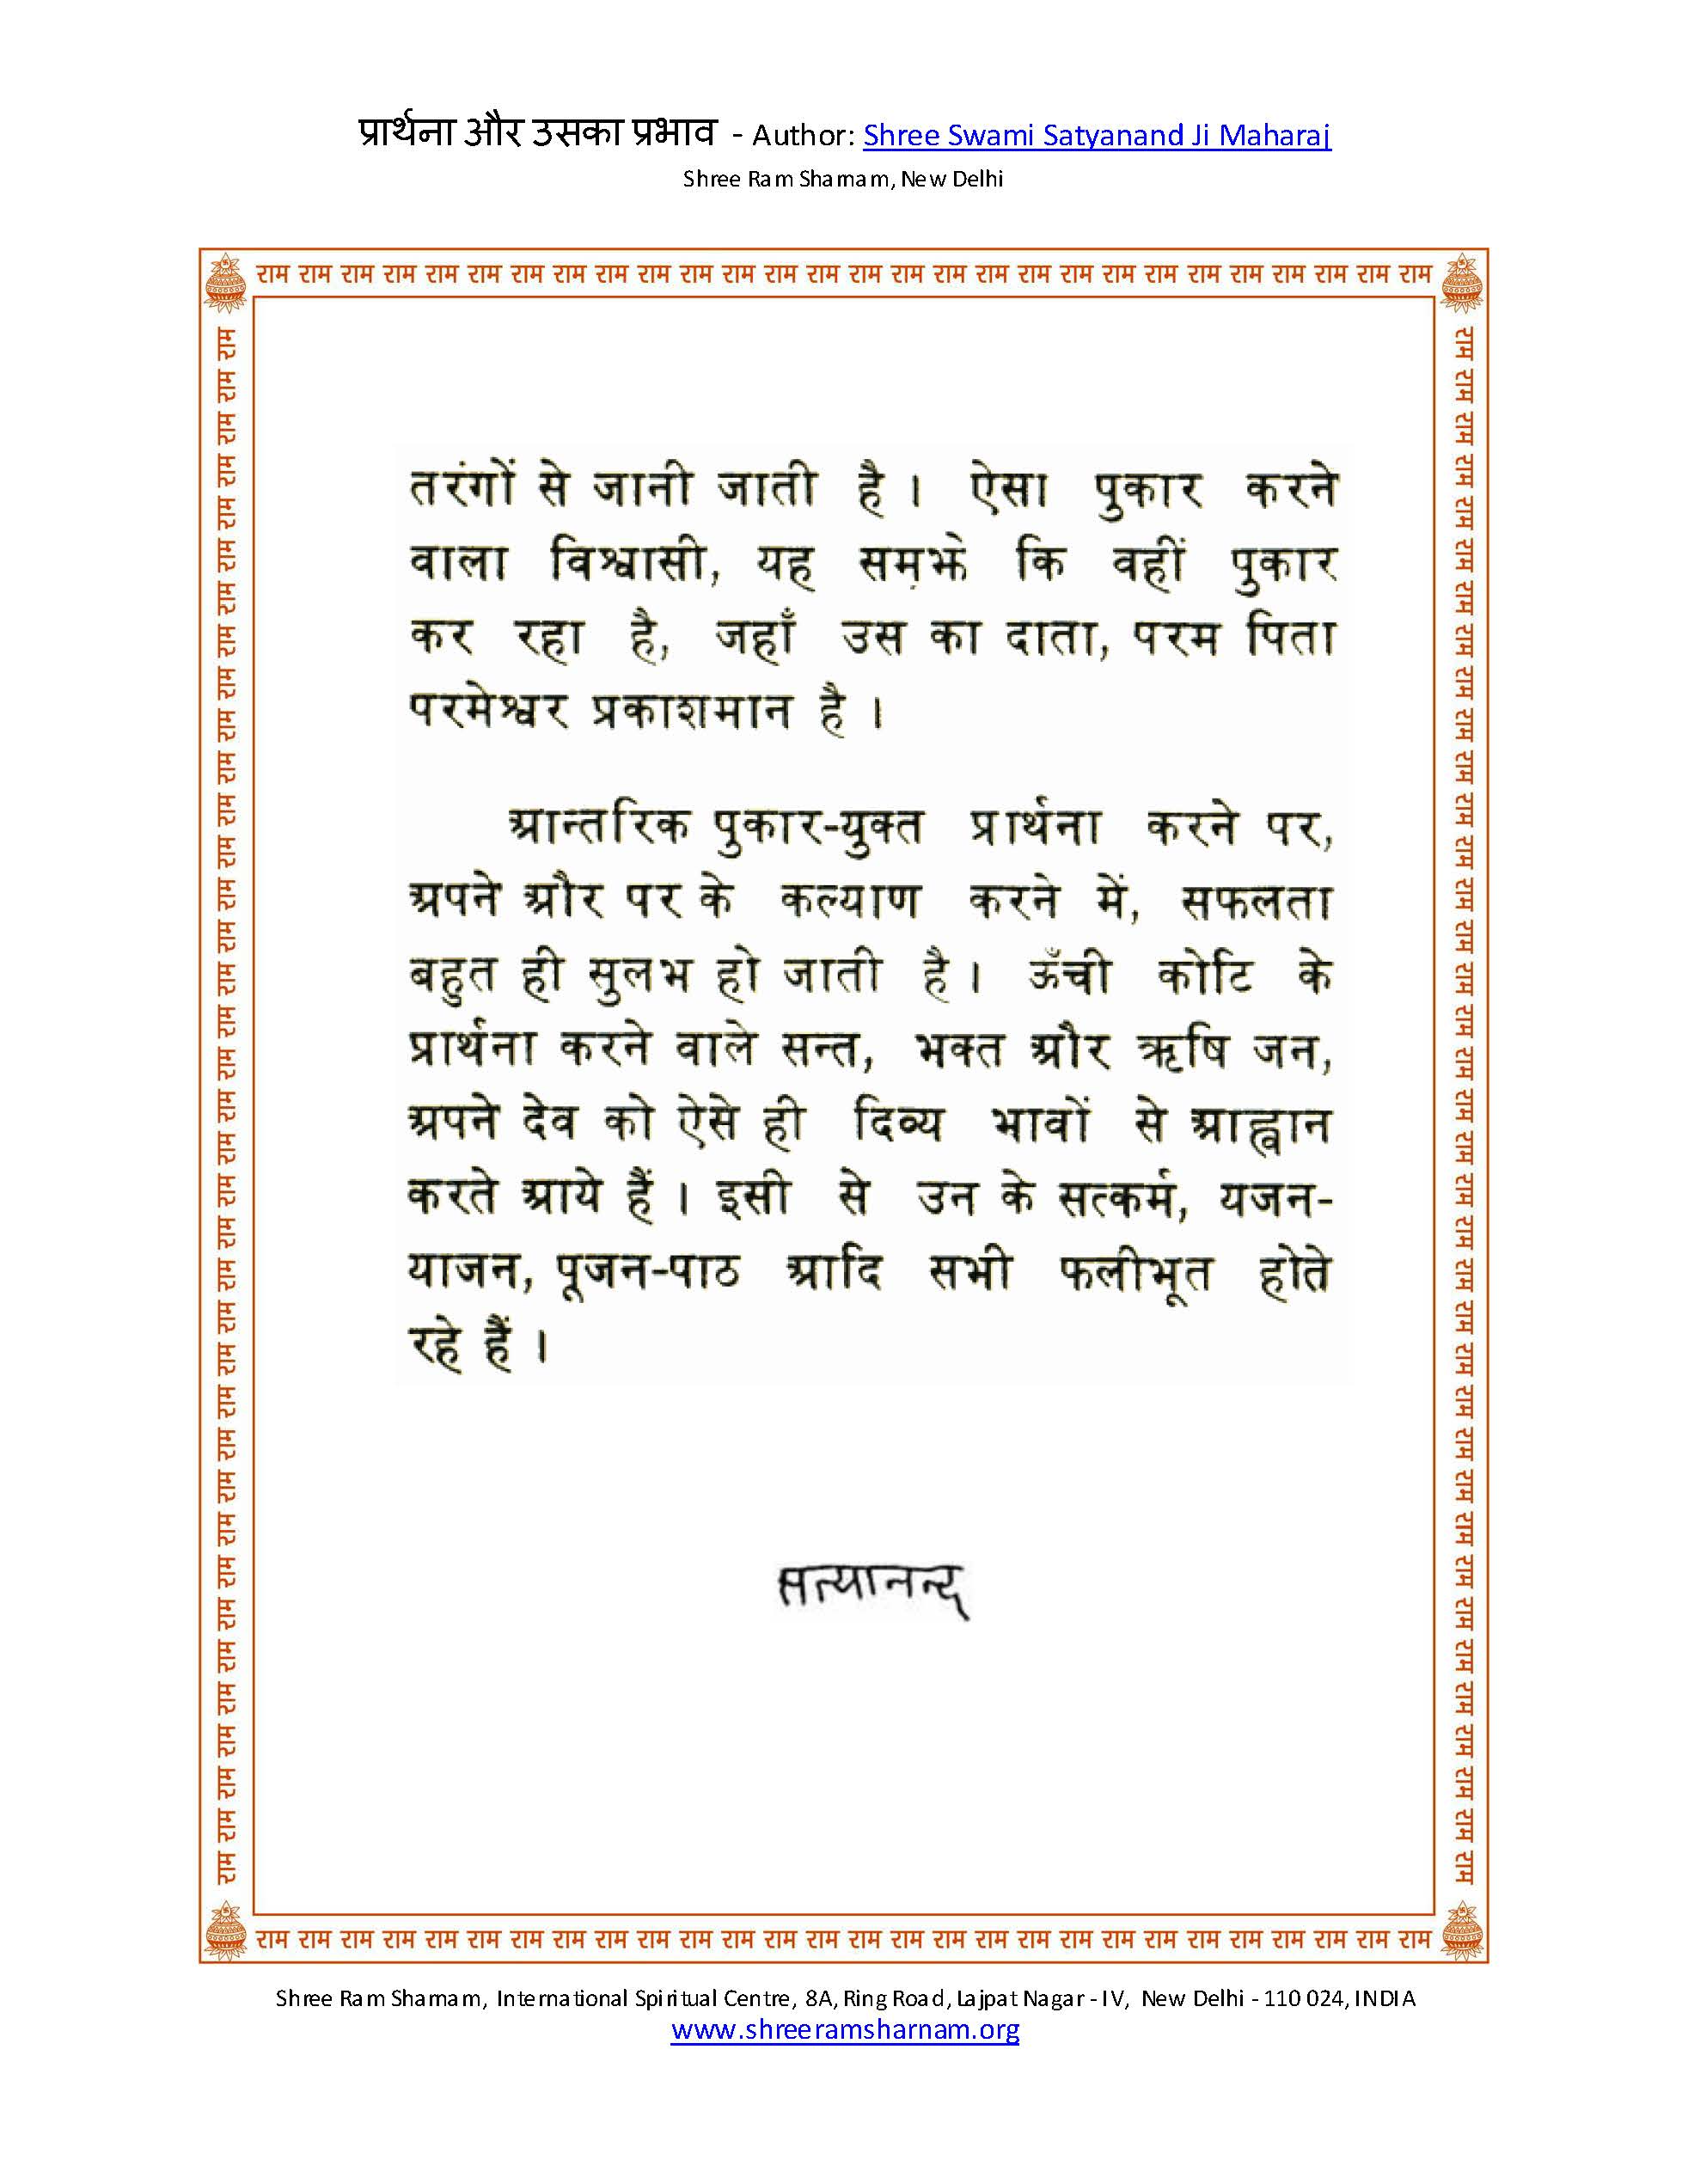 प्रार्थना और उसका प्रभाव - Author: Shree Swami Satyanand Ji Maharaj
Shree Ram Sharnam, New Delhi
राम राम राम राम राम राम राम राम राम राम राम राम राम राम राम राम राम राम राम राम राम राम राम राम राम राम राम राम
राम राम राम राम राम राम राम राम राम राम राम राम राम राम राम राम राम राम राम राम राम राम राम राम राम राम राम राम राम राम राम राम राम राम राम राम राम
तरंगों से जानी जाती है । ऐसा पुकार करने
वाला विश्वासी, यह समझे कि वहीं पुकार
कर रहा है, जहाँ उस का दाता, परम पिता
परमेश्वर प्रकाशमान है ।
आन्तरिक पुकार-युक्त प्रार्थना करने पर,
अपने और पर के कल्याण करने में, सफलता
बहुत ही सुलभ हो जाती है । ऊँची कोटि के
प्रार्थना करने वाले सन्त, भक्त और ऋषि जन,
अपने देव को ऐसे ही दिव्य भावों से आह्वान
करते आये हैं । इसी से उन के सत्कर्म, यजन-
याजन, पूजन-पाठ आदि सभी फलीभूत होते
रहे हैं ।
सत्यानन्द
राम राम राम राम राम राम राम राम राम राम राम राम राम राम राम राम राम राम राम राम राम राम राम राम राम राम राम राम राम राम राम राम राम राम राम राम राम
राम राम राम राम राम राम राम राम राम राम राम राम राम राम राम राम राम राम राम राम राम राम राम राम राम राम राम राम
Shree Ram Sharnam, International Spiritual Centre, 8A, Ring Road, Lajpat Nagar - IV, New Delhi - 110 024, INDIA
www.shreeramsharnam.org